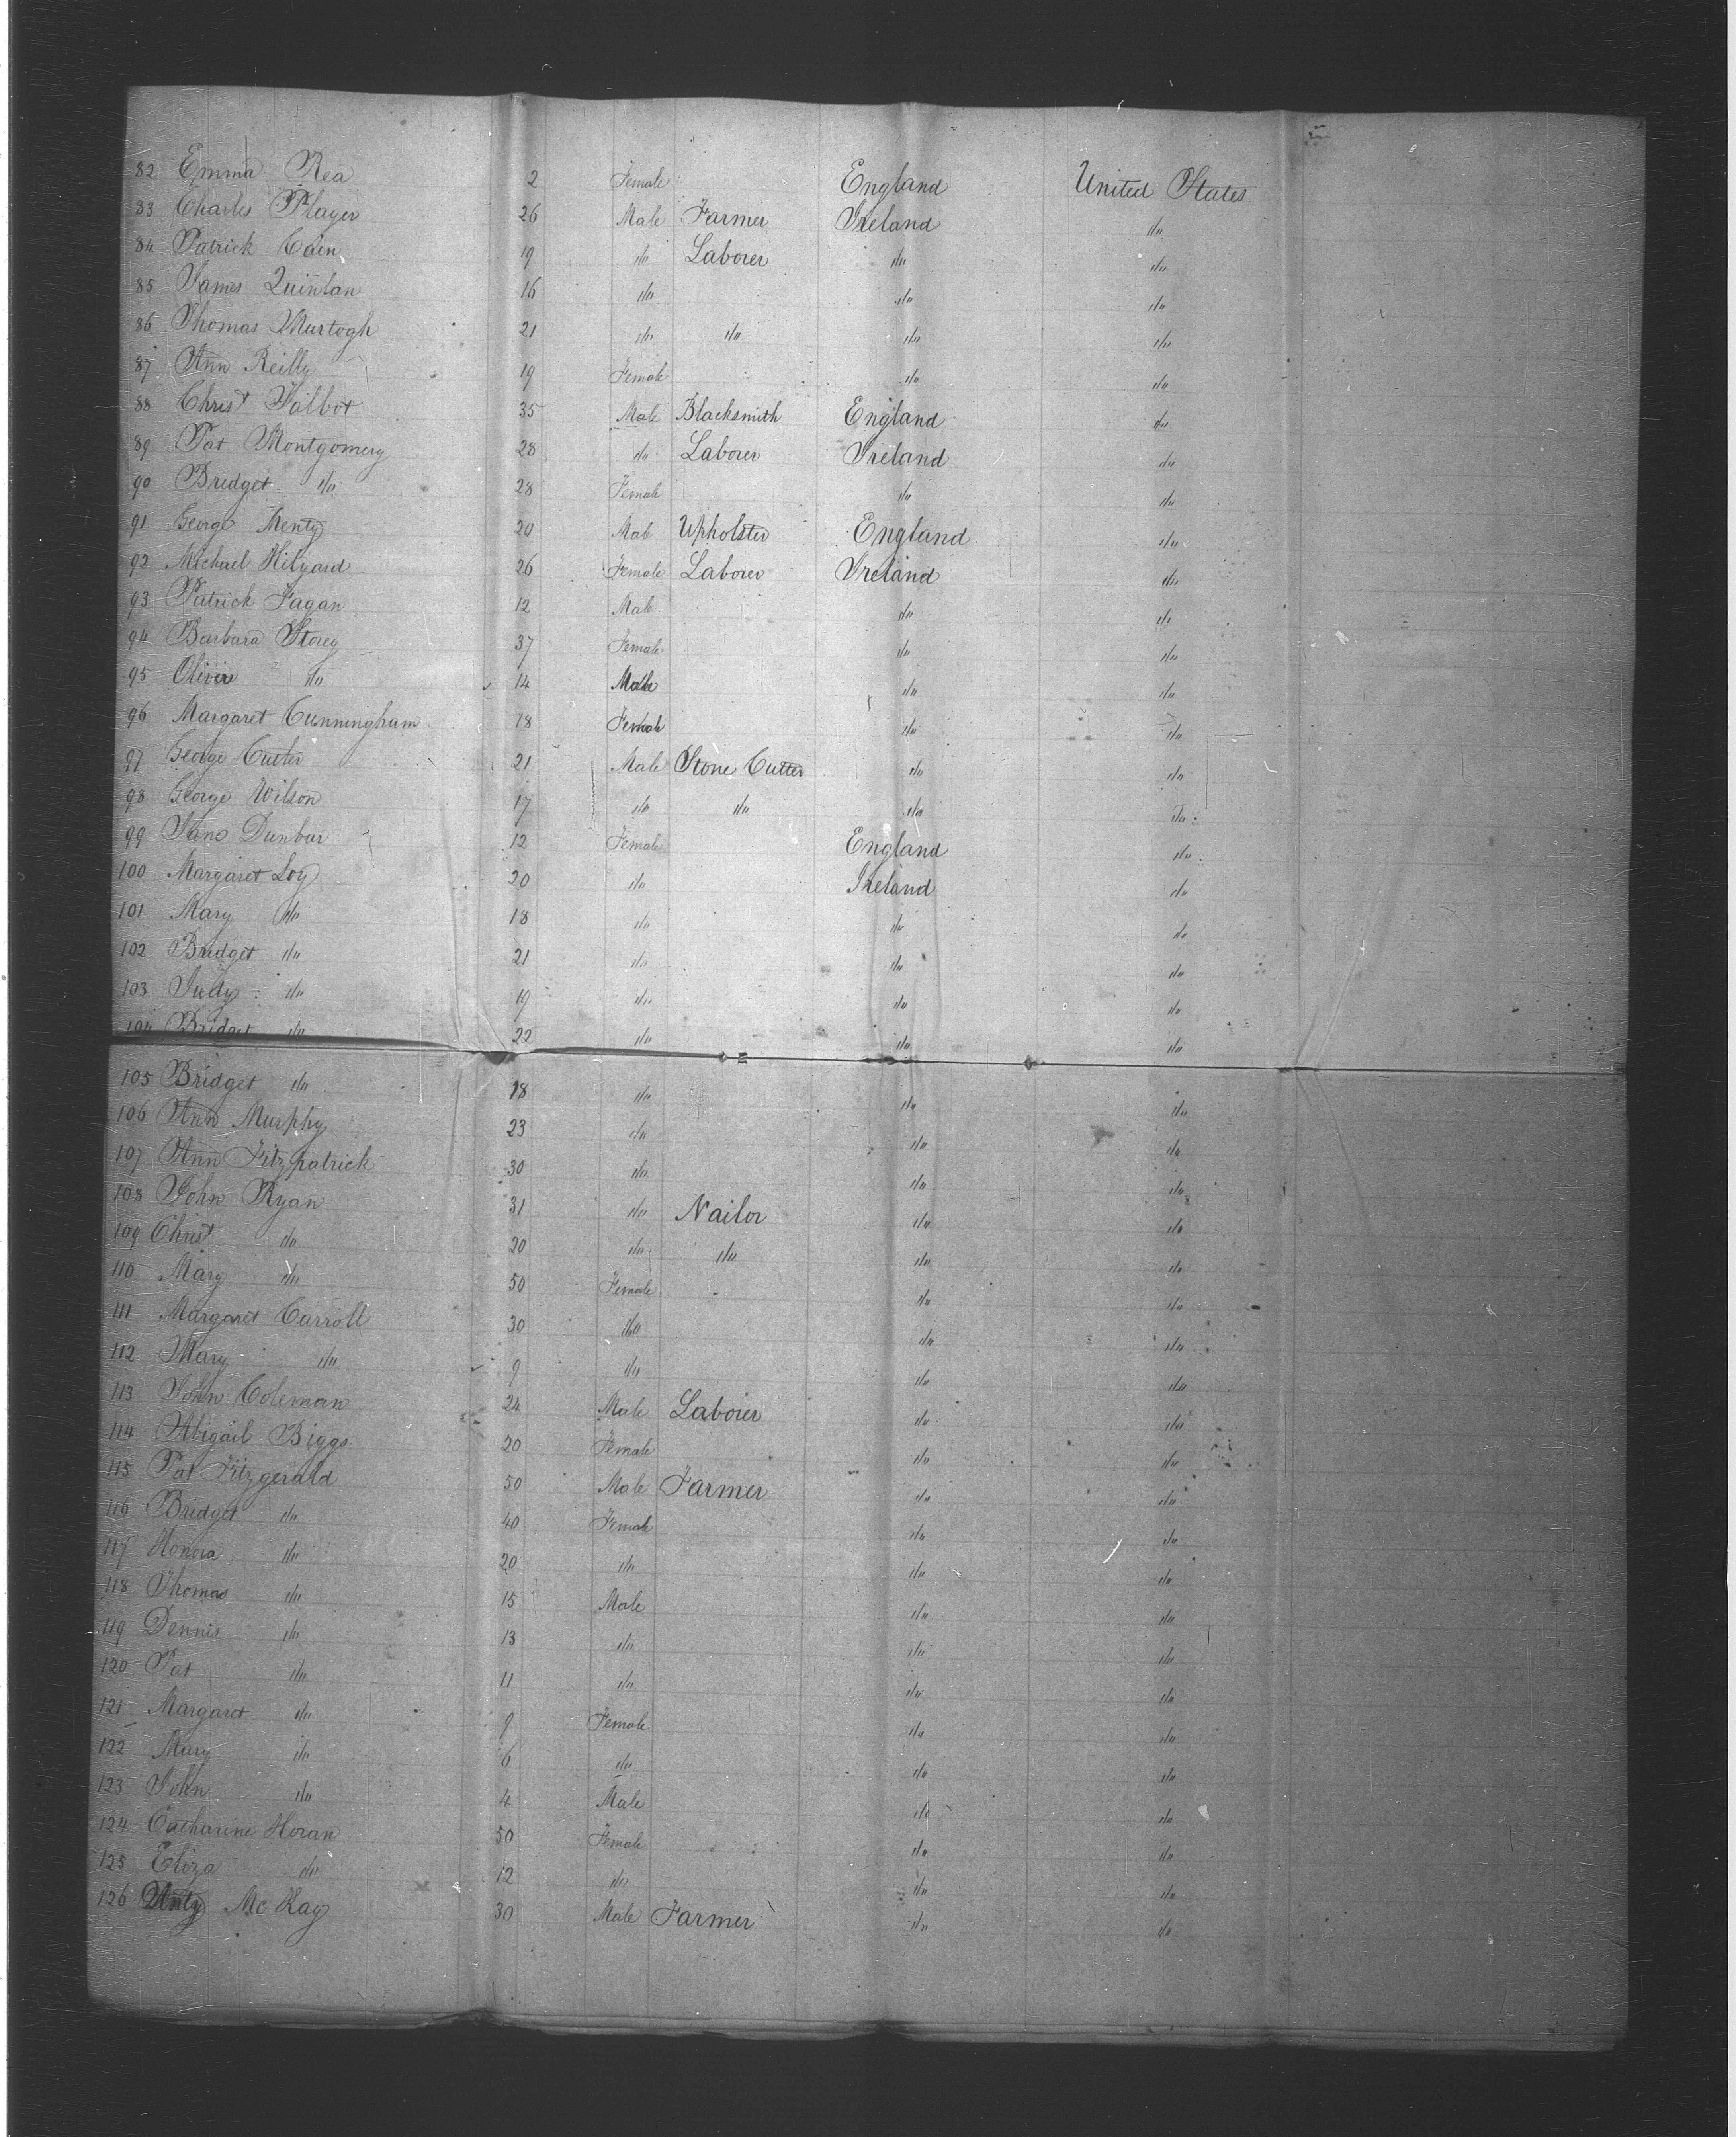 82 Emma Rea 2 Female England United States
83 Charles Player 26 Male Farmer Ireland do
84 Patrick Cain 19 do Laborer do do
85 James Quinlan 16 do do do
86 Thomas Murtogh 21 do do do do
87 Ann Reilly 19 Female do do
88 Christ Talbot 35 Male Blacksmith England do
89 Pat Montgomery 28 do Laborer Ireland do
90 Bridget do 28 Female do do
91 George 20 Male Upholster England do
92 Michael Hilyard 26 Female Laborer Ireland do
93 Patrick Fagan 12 Male do do
94 Barbara Storey 37 Female do do
95 Oliver do 14 Male do do
96 Margaret Cunningham 18 Female do do
97 George Cutler 21 Male Stone Cutter do do
98 George Wilson 17 do do do do
99 Jane Dunbar 12 Female England do
100 Margaret Loy 20 do Ireland do
101 Mary do 18 do do do
102 Bridget do 21 do do do
103 Judy do 19 do do do
104 Bridget do 22 do do do
105 Bridget do 18 do do do
106 Ann Murphy 23 do do do
107 Ann Fitzpatrick 30 do do do
108 John Ryan 31 do Nailor do do
109 Christ do 20 do do do do
110 Mary do 50 Female do do
111 Margaret Carroll 30 do do do
112 Mary do 9 do do do
113 John Coleman 24 Male Laborer do do
114 Abigail Biggs 20 Female do do
115 Pat Fitzgerald 50 Male Farmer do do
116 Bridget do 40 Female do do
117 Honora do 20 do do do
118 Thomas do 15 Male do do
119 Dennis do 13 do do do
120 Pat do 11 do do do
121 Margaret do 9 Female do do
122 Mary do 6 do do do
123 John do 4 Male do do
124 Catharine Horan 50 Female do do
125 Eliza do 12 do do do
126 Anty McKay 30 Male Farmer do do